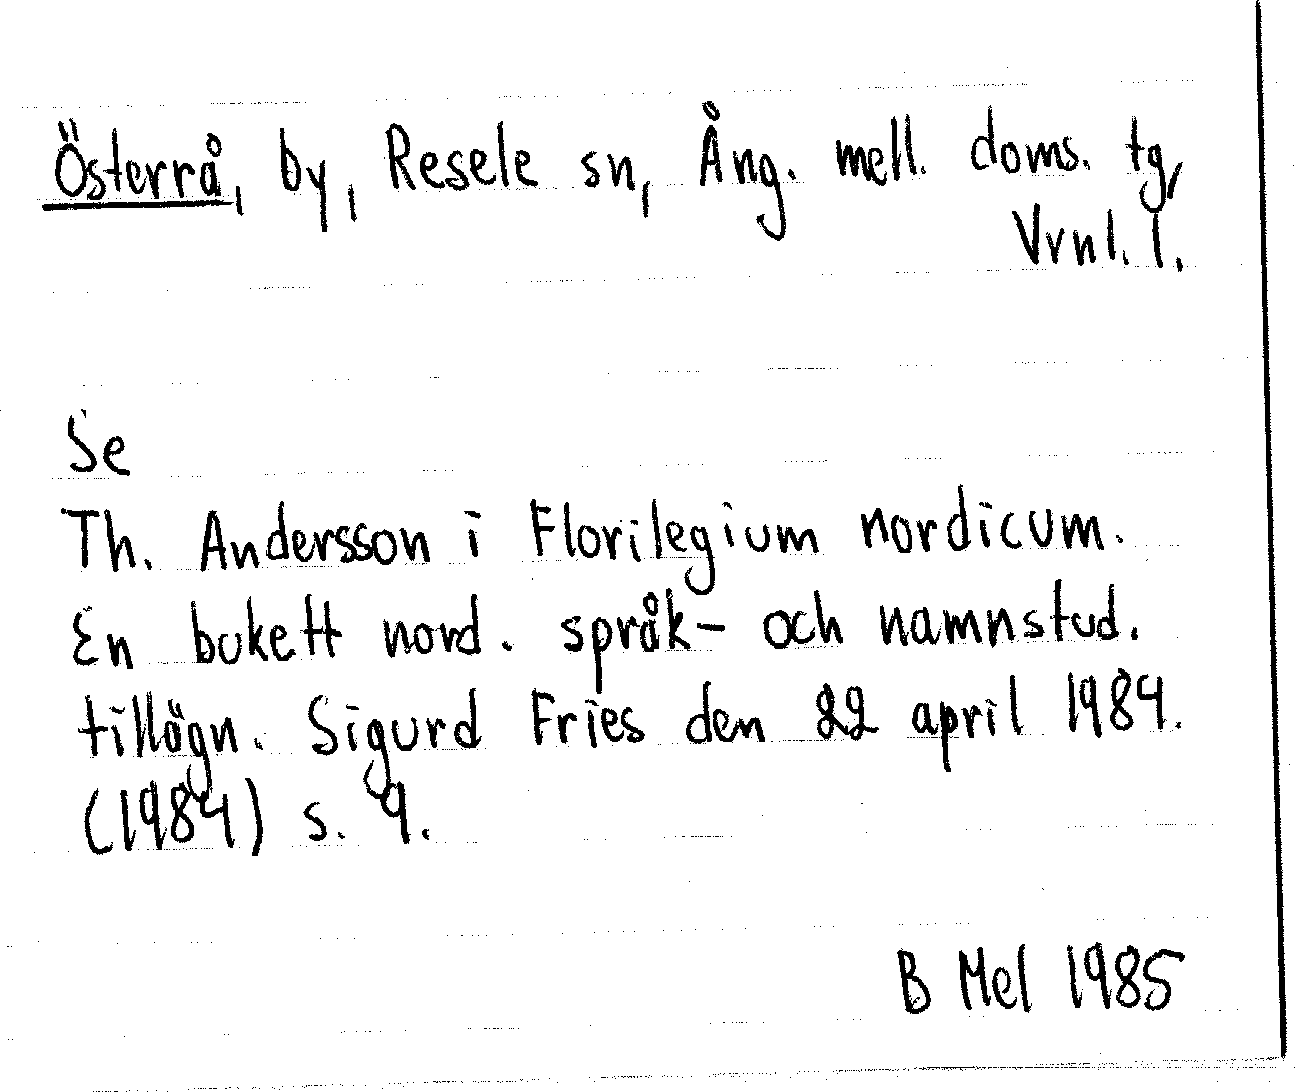 Österrå, by, Resele sn, Ång. mell. doms. tg,
Vrnl. l.
Se
Th. Andersson i Florilegium nordicum.
En bukett nord. språk- och namnstud.
tillägn. Sigurd Fries den 22 april 1984.
(1984) s. 9.
B Mel 1985